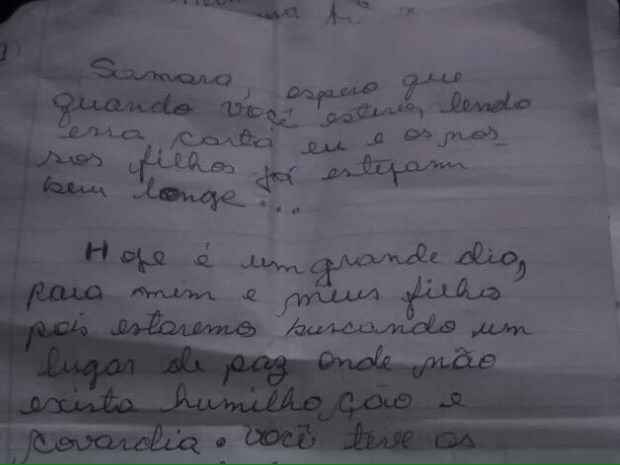 1)
Samara, espero que
quando você estiver lendo
essa carta eu e os nos_
sos filhos já estejam
bem longe...
Hoje é um grande dia,
para mim e meus filho
pois estaremo buscando um
lugar de paz onde não
exista humilhoção e
covardia. você teve os